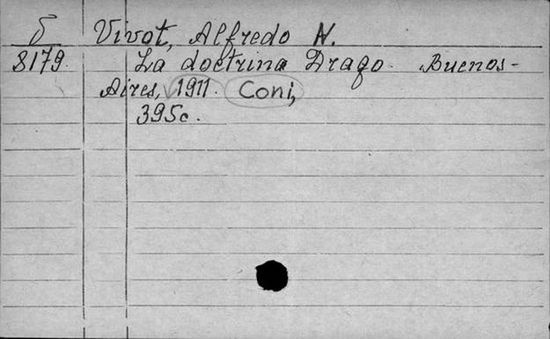 δ Vivot, Alfredo N.
8179. La doctrina Drago. Buenos-
Aires, 1911. Coni,
395c.